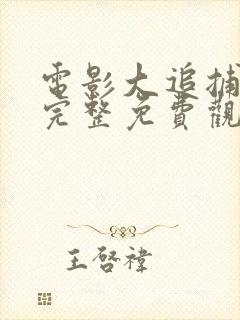 電影大追捕
完整免費觀
王啓禕